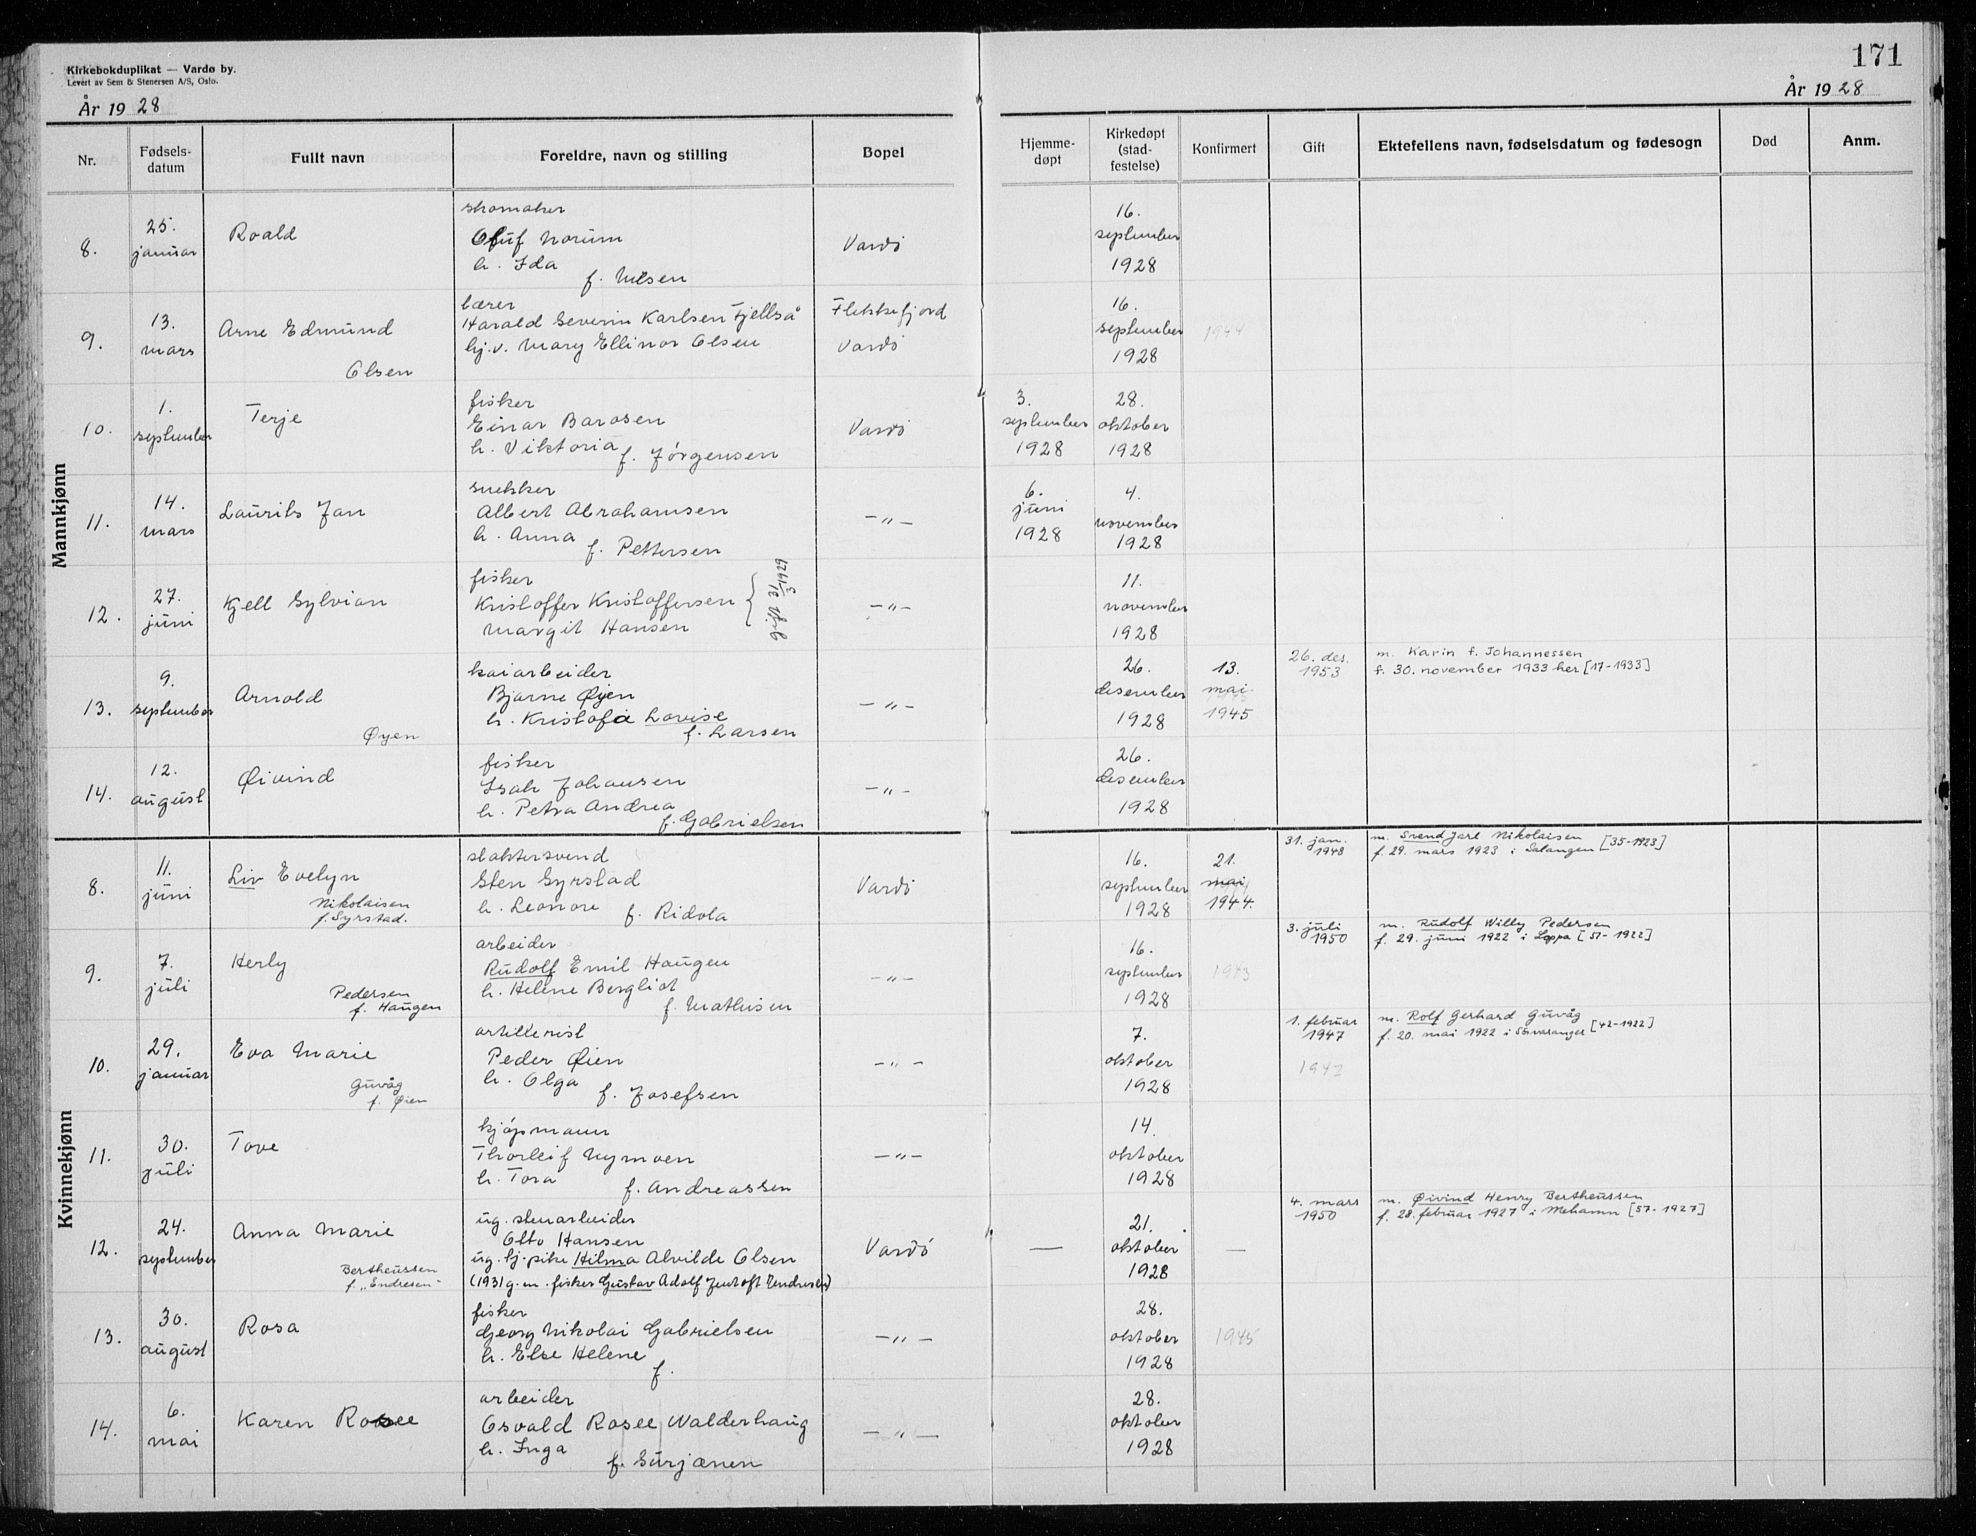 Kirkebokduplikat — Vardø by.
Levert av Sem & Stenersen A/S, Oslo.
171
År 1928
År 1928
Nr.
Fødsels-
datum
Fullt navn
Foreldre, navn og stilling
Bopel
Hjemme-
døpt
Kirkedøpt
(stad-
festelse)
Konfirmert
Gift
Ektefellens navn, fødselsdatum og fødesogn
Død
Anm.
Mannkjønn
8.
25.
januar
Roald
skomaker
Oluf Norum
h. Ida
f. Nilsen
Vardö
16.
september
1928
9.
13.
mars
Arne Edmund
Olsen
lærer
Harald Severin Karlsen Fjellså
hj.v. Mary Ellinor Olsen
Flekkefjord
Vardö
16.
september
1928
1944
10.
1.
september
Terje
fisker
Einar Barosen
h. Viktoria
f. Jörgensen
Vardö
3.
september
1928
28.
oktober
1928
11.
14.
mars
Laurits Jan
snekker
Albert Abrahamsen
h. Anna
f. Pettersen
—"—
6.
juni
1928
4.
november
1928
12.
27.
juni
Kjell Sylvian
fisker
Kristoffer Kristoffersen
Margit Hansen
gift 31/3 1929
—"—
11.
november
1928
13.
9.
september
Arnold
Øyen
kaiarbeider
Bjarne Øyen
h. Kristofa Lovise
f. Larsen
—"—
26.
desember
1928
13.
mai
1945
26. des.
1953
m. Karin f. Johannessen
f. 30. november 1933 her [17-1933]
14.
12.
august
Øivind
fisker
Isak Johansen
h. Petra Andrea
f. Gabrielsen
—"—
26.
desember
1928
Kvinnekjønn
8.
11.
juni
Liv Evelyn
Nikolaisen
f. Syrstad.
slaktersvend
Sten Syrstad
h. Leonore
f. Ridola
Vardö
16.
september
1928
21.
mai
1944.
31. jan.
1948
m. Svend Jarl Nikolaisen
f. 29. mars 1923 i Salangen [35-1923]
9.
7.
juli
Herly
Pedersen
f. Haugen
arbeider
Rudolf Emil Haugen
h. Helene Bergliot
f. Mathisen
—"—
16.
september
1928
1943
3. juli
1950
m. Rudolf Willy Pedersen
f. 29. juni 1922 i Loppa [51-1922]
10.
29.
januar
Eva Marie
Guvåg
f. Øien
artillerist
Peder Øien
h. Olga
f. Josefsen
—"—
7.
oktober
1928
1. februar
1947
1947
m. Rolf Gerhard Guvåg
f. 20. mai 1922 i Sörvaranger [42-1922]
11.
30.
juli
Tove
kjöpmann
Thorleif Nymoen
h. Tora
f. Andreassen
—"—
14.
oktober
1928
12.
24.
september
Anna Marie
Bertheussen
f. „Endresen"
ug. stenarbeider
Otto Hansen
ug. hj. pike Hilma Alvilde Olsen
(1931 g.m. fisker Gustav Adolf Jentoft Endresen)
Vardö
—
21.
oktober
1928
—
4. mars
1950
m. Øivind Henry Bertheussen
f. 28. februar 1927 i Mehamn [57-1927]
13.
30.
august
Rosa
fisker
Georg Nikolai Gabrielsen
h. Else Helene
f.
—"—
28.
oktober
1928
1945
14.
6.
mai
Karen Rosee
arbeider
Osvald Rosee Walderhaug
h. Inga
f. Surjænen
—"—
28.
oktober
1928